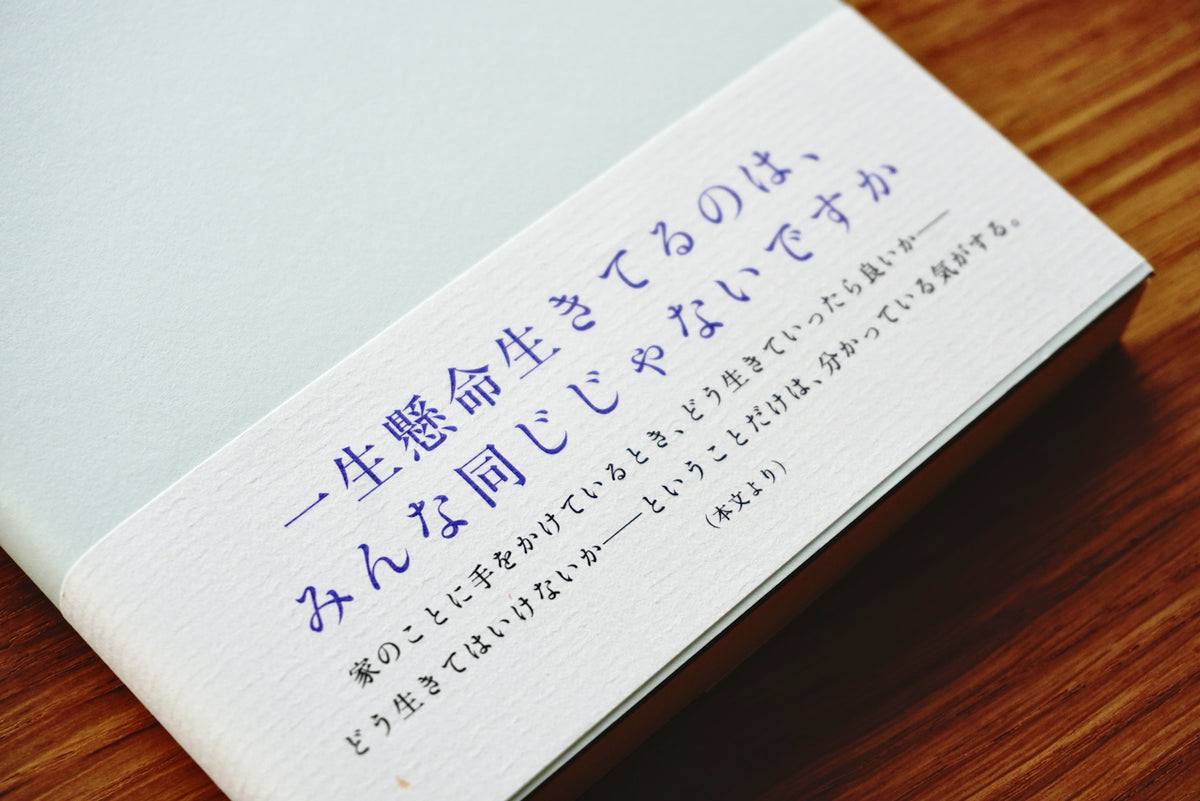 一生懸命生きてるのは、
みんな同じじゃないですか
家のことに手をかけているとき、どう生きていったら良いか――
どう生きてはいけないか――ということだけは、分かっている気がする。
（本文より）